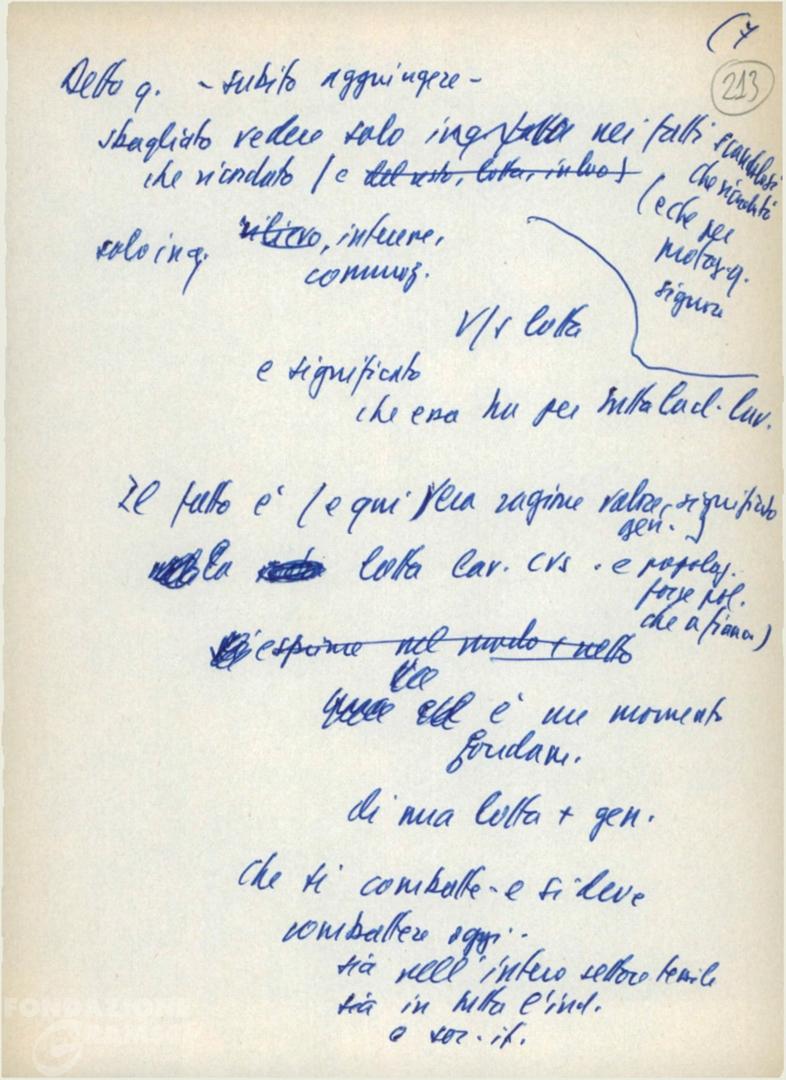 (7
213
Detto q. - subito aggiungere -
sbagliato vedere solo in q. nei fatti scandalosi
che ricordato (e del resto, lotta, in luo)
che ricordato
(e che per
motos. q.
signora
solo in q. rilievo, interesse,
commoz.
V/s lotta
e significato
che essa ha per tutta la cl. lav.
Il fatto è (e qui vera ragione valore, significato
gen.)
la lotta lav. CVS - e popolaz.
forze pol.
che a fianco)
esprime nel modo + netto
è un momento
fondam.
di una lotta + gen.
che si combatte - e si deve
combattere oggi -
sia nell'intero settore tessile
sia in tutta l'ind.
e soc. it.
FONDAZIONE
GRAMSCI